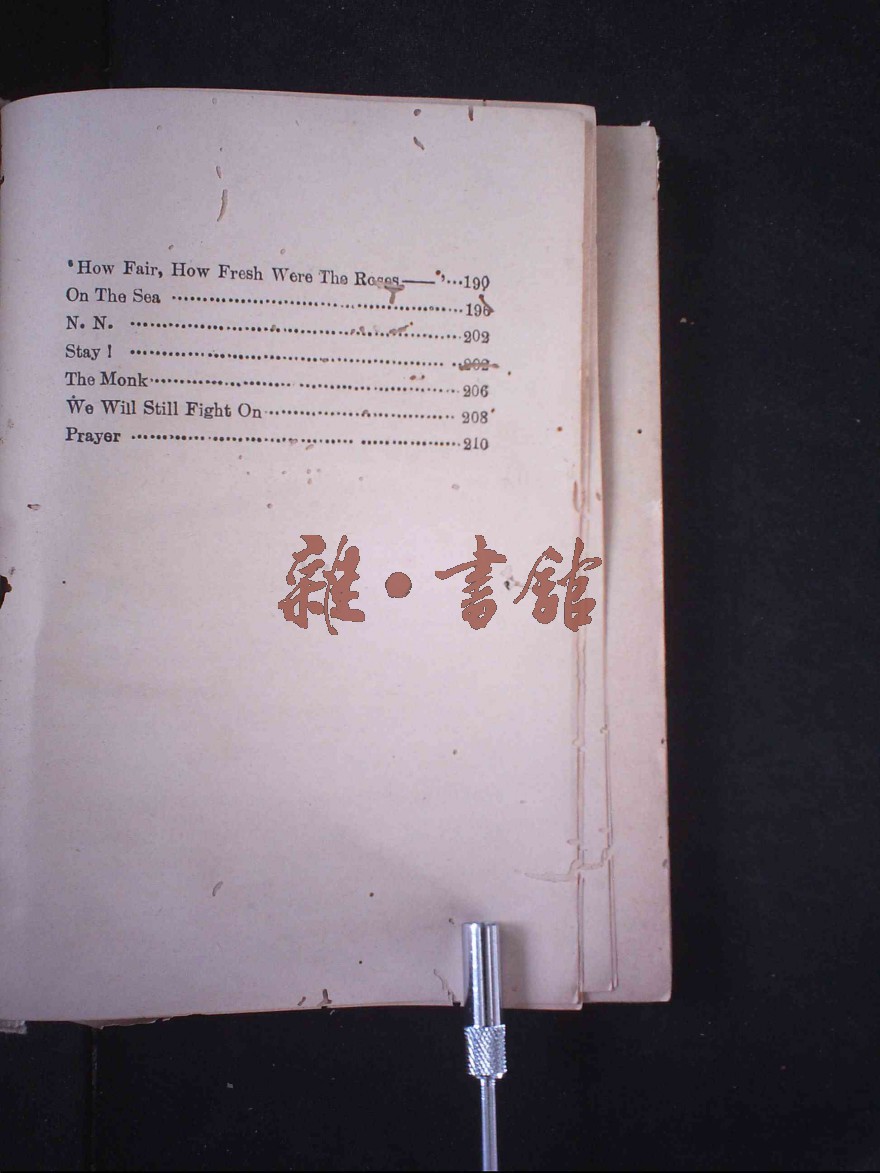 ‘How Fair, How Fresh Were The Roses——’...190
On The Sea ........................................................198
N. N. ........................................................202
Stay ! ........................................................
The Monk........................................................206
We Will Still Fight On........................................208
Prayer ........................................................210
雜·書館